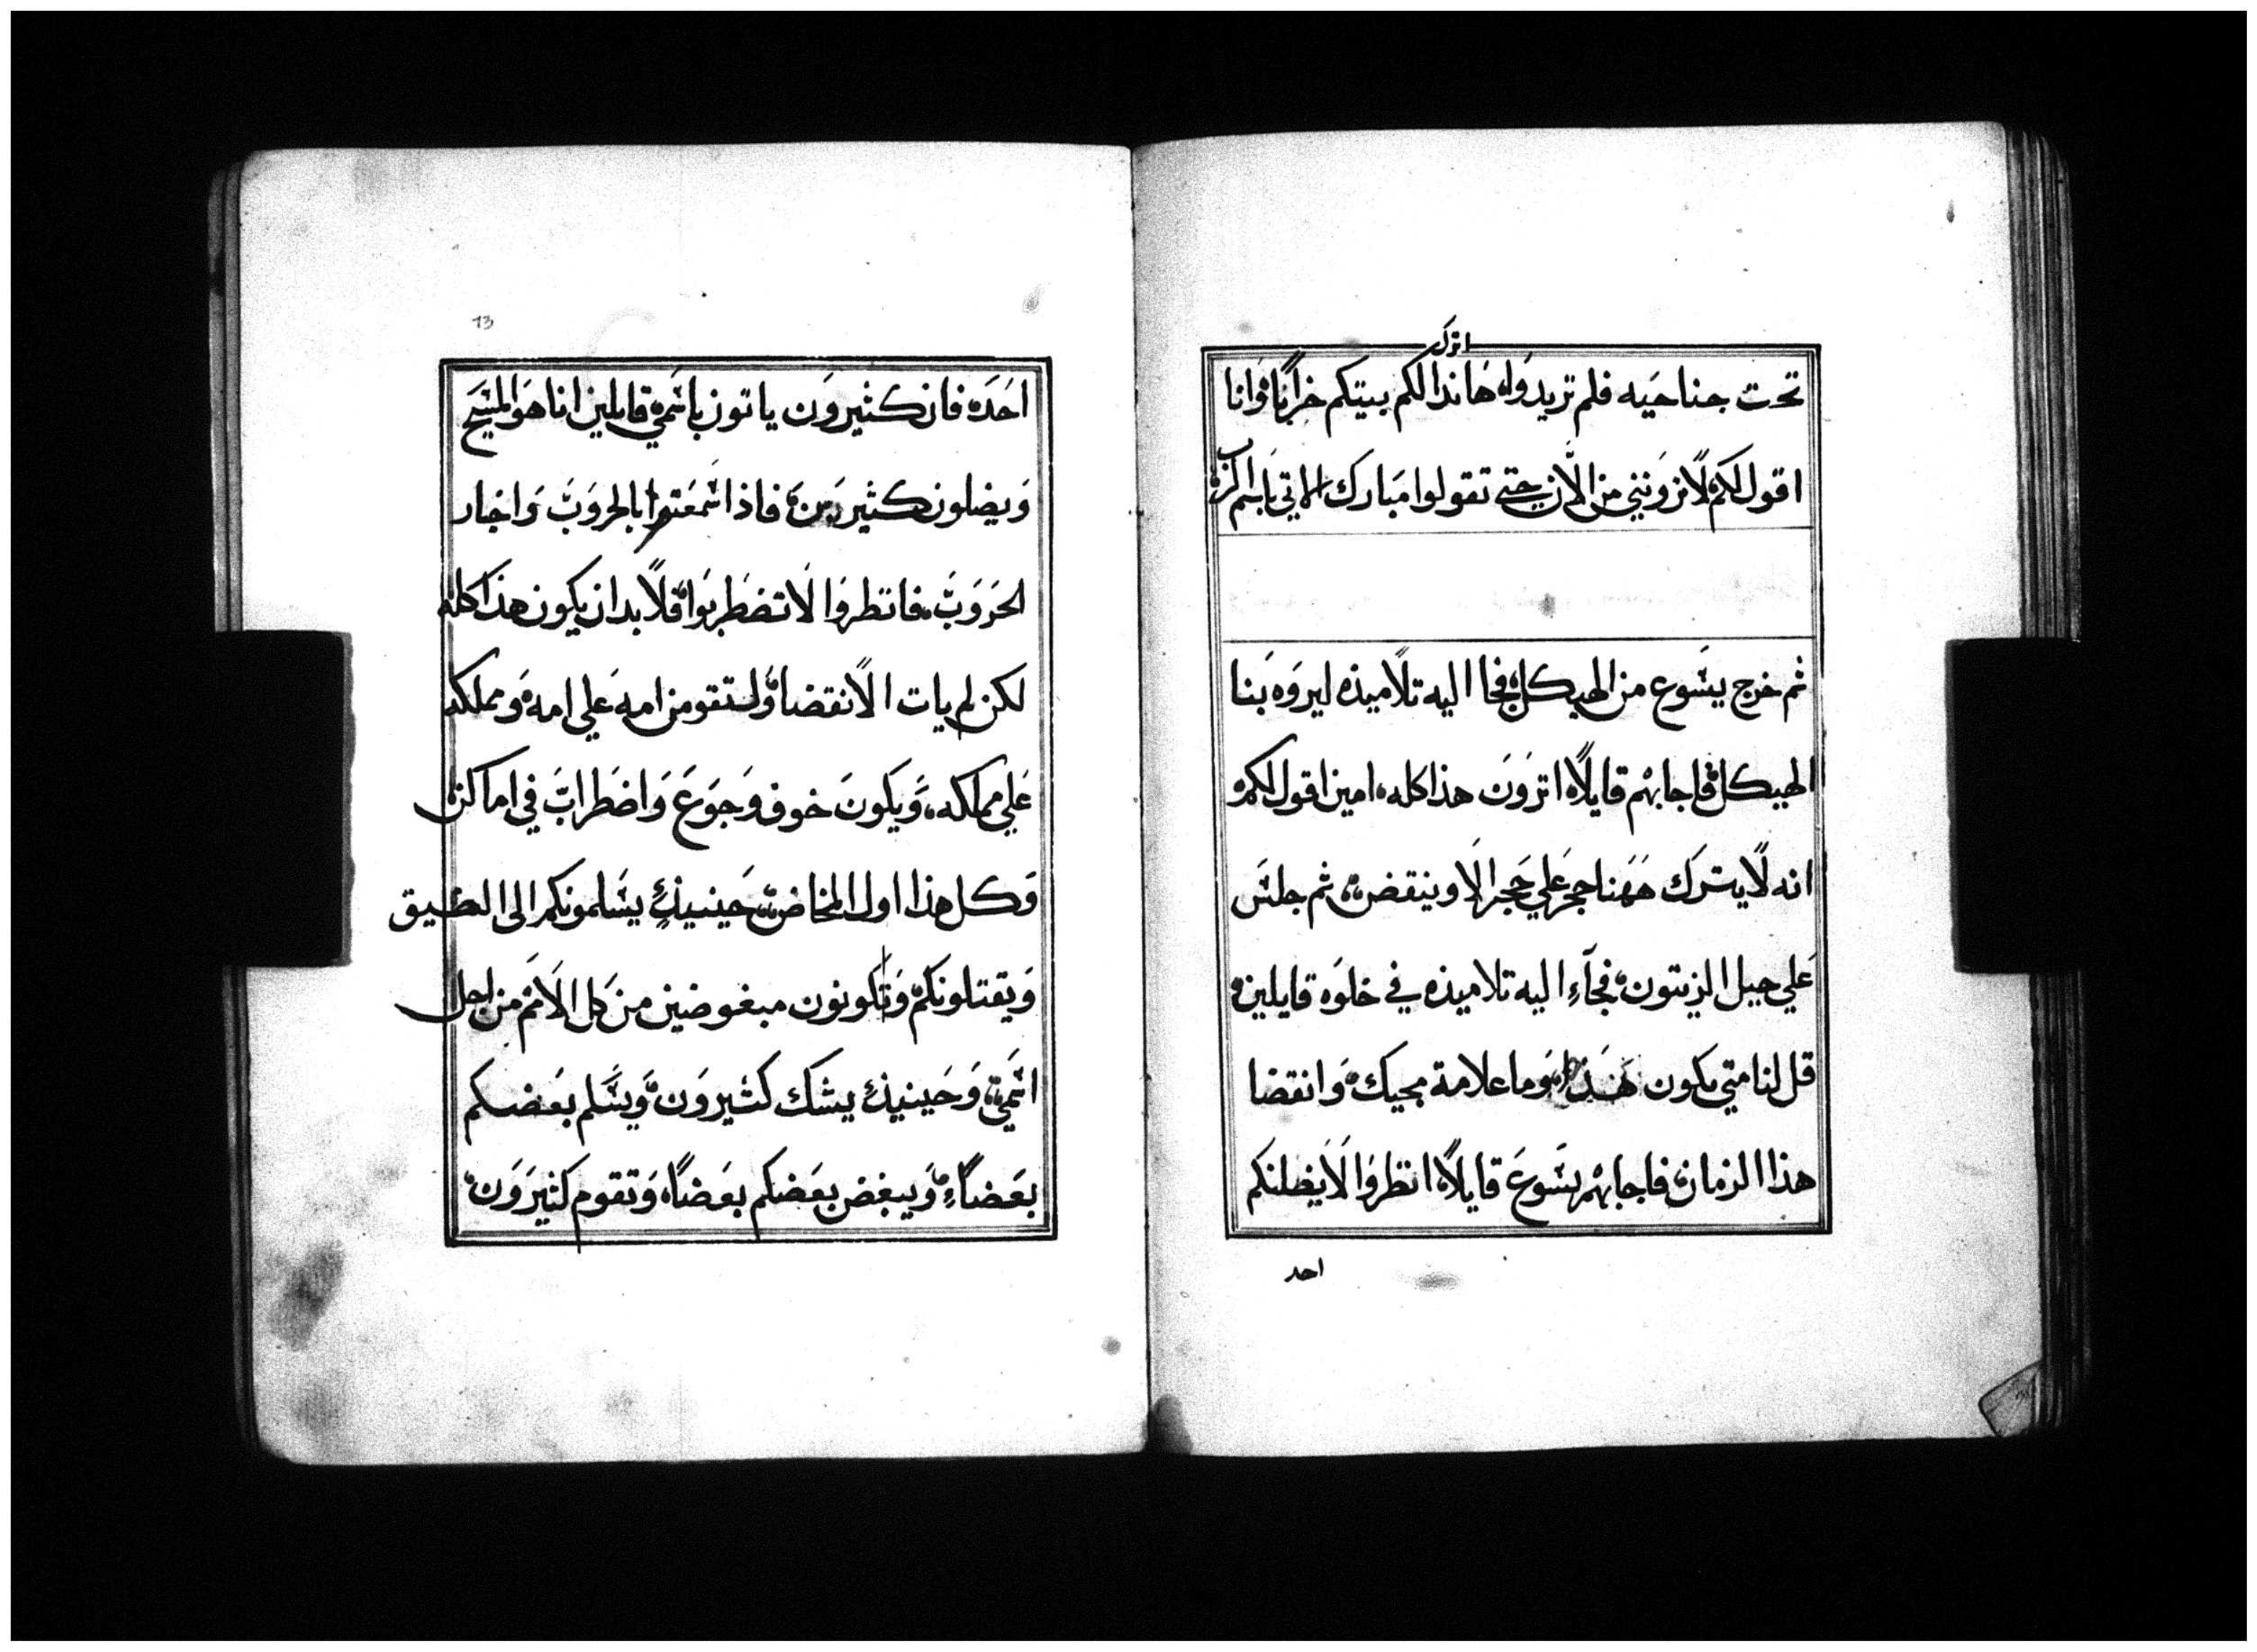 اترك
تحت جناحيه فلم تريدوا هاندا لكم بيتكم خرابا وانا
اقول لكم لا ترونني من الان حتي تقولوا مبارك الاتي باسم الرب
ثم خرج يسوع من الهيكل فجا اليه تلاميذه ليروه بنا
الهيكل فاجابهم قايلا اترون هذا كله امين اقول لكم
انه لا يترك ههنا حجر علي حجر الا وينقض ثم جلس
علي جبل الزيتون فجآء اليه تلاميذه في خلوه قايلين
قل لنا متي يكون هذا وما علامة مجيك وانقضا
هذا الزمان فاجابهم يسوع قايلا انظروا لا يضلنكم
احد
13
احده فان كثيرون ياتون باسمي قايلين انا هو المسيح
ويضلون كثيرين فاذا سمعتم بالحروب واخبار
الحروب فانظروا لا تضطربوا فلا بد ان يكون هذا كله
لكن لم يات الانقضا ولستقومن امه علي امه ومملكه
علي مملكه ويكون خوف وجوع واضطراب في اماكن
وكل هذا اول المخاض حينيذ يسلمونكم الي الضيق
ويقتلونكم وتكونون مبغوضين من كل الامم من اجل
اسمي وحينيذ يشك كثيرون ويسلم بعضكم
بعضاء ويبغض بعضكم بعضا وتقوم كثيرون